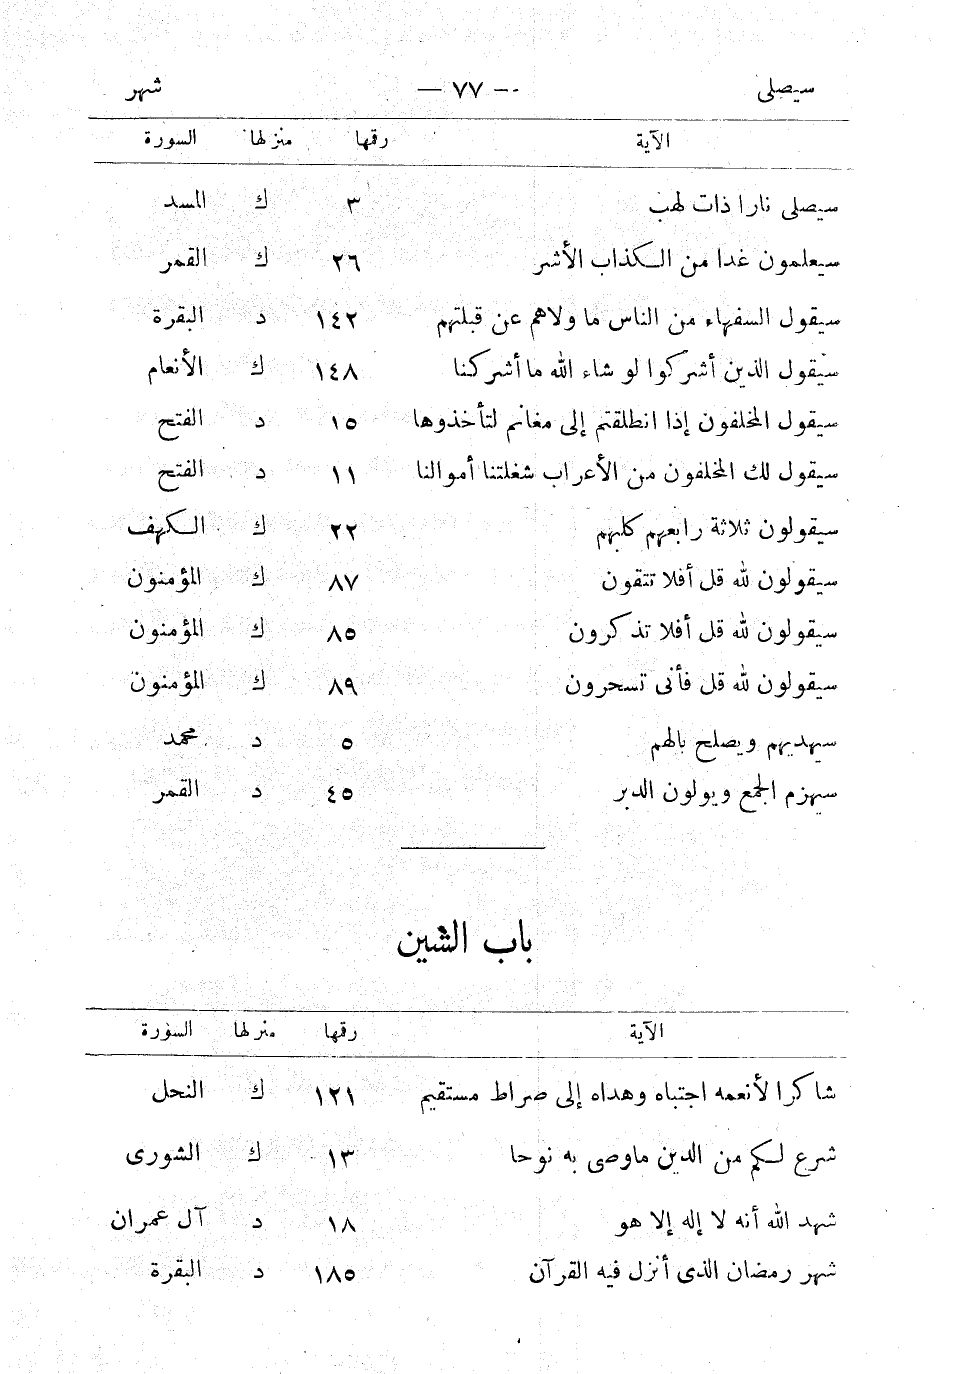 سيصلى — ٧٧ — شهر
الآية رقمها منزلها السورة
سيصلى نارا ذات لهب ٣ ك المسد
سيعلمون غدا من الكذاب الأشر ٢٦ ك القمر
سيقول السفهاء من الناس ما ولاهم عن قبلتهم ١٤٢ د البقرة
سيقول الذين أشركوا لو شاء الله ما أشركنا ١٤٨ ك الأنعام
سيقول المخلفون إذا انطلقتم إلى مغانم لتأخذوها ١٥ د الفتح
سيقول لك المخلفون من الأعراب شغلتنا أموالنا ١١ د الفتح
سيقولون ثلاثة رابعهم كلبهم ٢٢ ك الكهف
سيقولون لله قل أفلا تتقون ٨٧ ك المؤمنون
سيقولون لله قل أفلا تذكرون ٨٥ ك المؤمنون
سيقولون لله قل فأنى تسحرون ٨٩ ك المؤمنون
سيهديهم ويصلح بالهم ٥ د محمد
سيهزم الجمع ويولون الدبر ٤٥ د القمر
باب الشين
الآية رقمها منزلها السورة
شاكرا لأنعمه اجتباه وهداه إلى صراط مستقيم ١٢١ ك النحل
شرع لكم من الدين ماوصى به نوحا ١٣ ك الشورى
شهد الله أنه لا إله إلا هو ١٨ د آل عمران
شهر رمضان الذى أنزل فيه القرآن ١٨٥ د البقرة